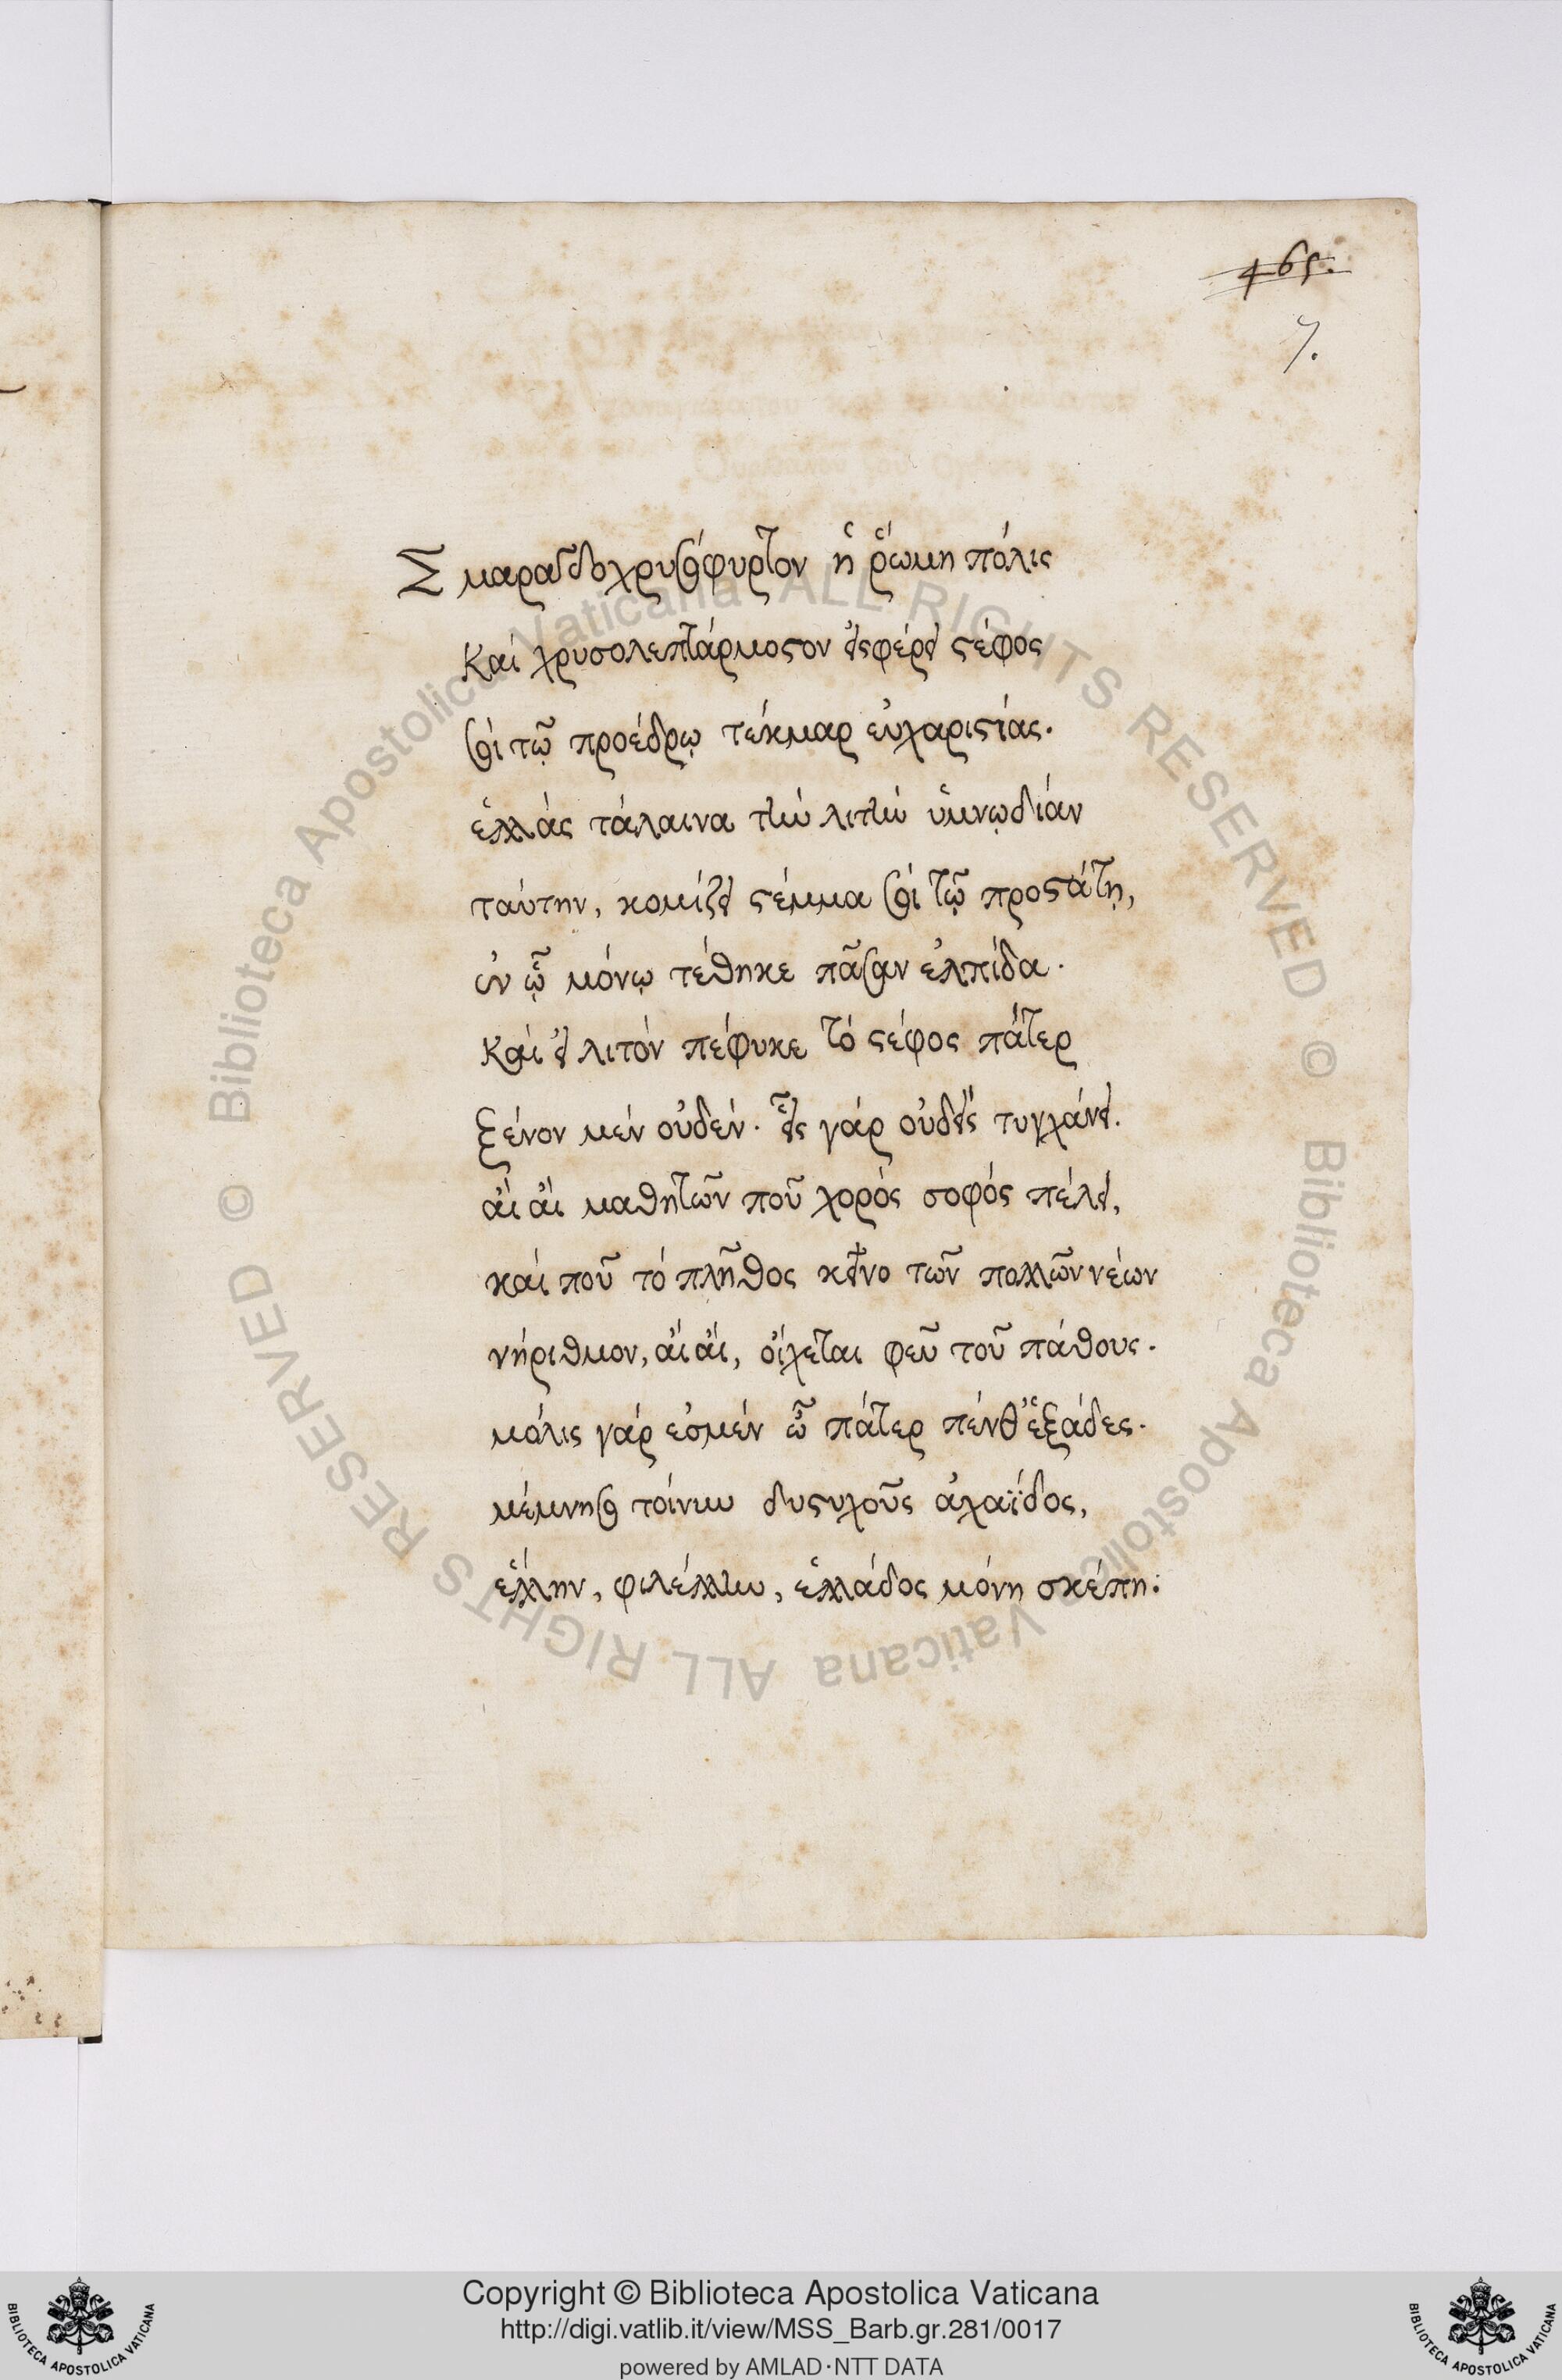 465.
7.
Σμαραγδοχρυσόφυρτον ἡ ῥώμη πόλις
Καὶ χρυσολεπτάρμοστον εἰσφέρει στέφος
σοὶ τῷ προέδρῳ τέκμαρ εὐχαριστίας.
ἑλλὰς τάλαινα τὴν λιτὴν ὑμνῳδίαν
ταύτην, κομίζει στέμμα σοὶ τῷ προστάτῃ,
ἐν ᾧ μόνῳ τέθηκε πᾶσαν ἐλπίδα.
Καὶ εἰ λιτὸν πέφυκε τὸ στέφος πάτερ
ξένον μὲν οὐδέν. εἷς γὰρ οὐδεὶς τυγχάνει.
αἲ αἲ μαθητῶν ποῦ χορὸς σοφὸς πέλει,
καὶ ποῦ τὸ πλῆθος κεῖνο τῶν πολλῶν νέων
νήριθμον, αἲ αἲ, οἴχεται φεῦ τοῦ πάθους.
μόλις γάρ ἐσμεν ὦ πάτερ πένθ' ἑξάδες.
μέμνησο τοίνυν δυστυχοῦς ἀχαΐδος,
ἕλλην, φιλέλλην, ἑλλάδος μόνη σκέπη:
© Biblioteca Apostolica Vaticana ALL RIGHTS RESERVED
© Biblioteca Apostolica Vaticana ALL RIGHTS RESERVED
Copyright © Biblioteca Apostolica Vaticana
http://digi.vatlib.it/view/MSS_Barb.gr.281/0017
powered by AMLAD·NTT DATA
BIBLIOTECA APOSTOLICA VATICANA
BIBLIOTECA APOSTOLICA VATICANA